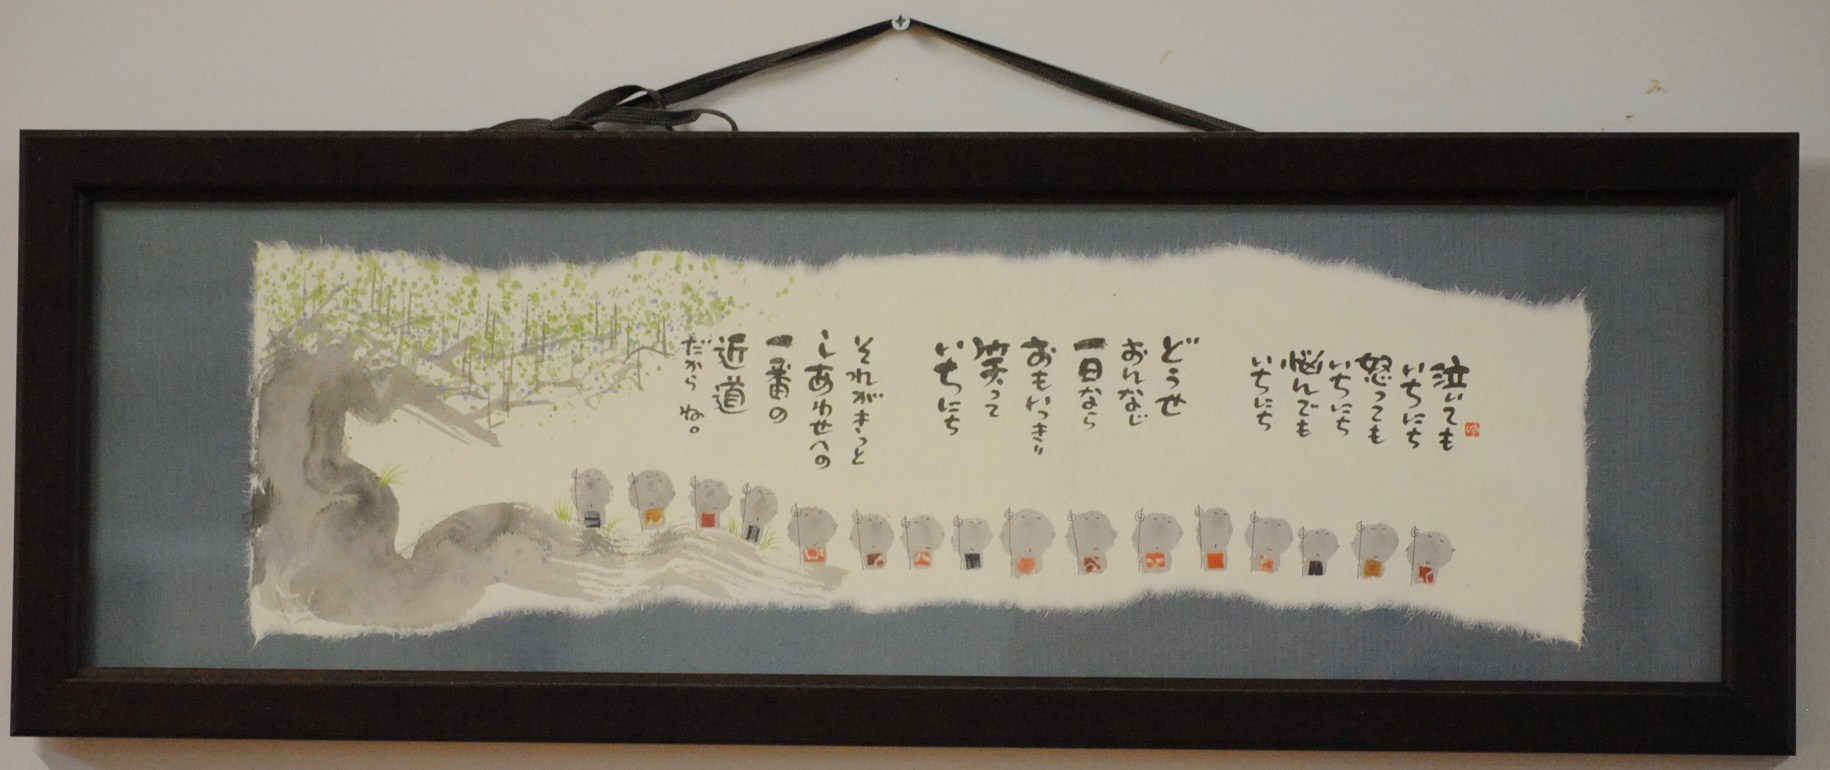 泣いても
いちにち
怒っても
いちにち
悩んでも
いちにち
どうせ
おんなじ
一日なら
おもいっきり
笑って
いちにち
それがきっと
しあわせへの
一番の
近道
だからね。